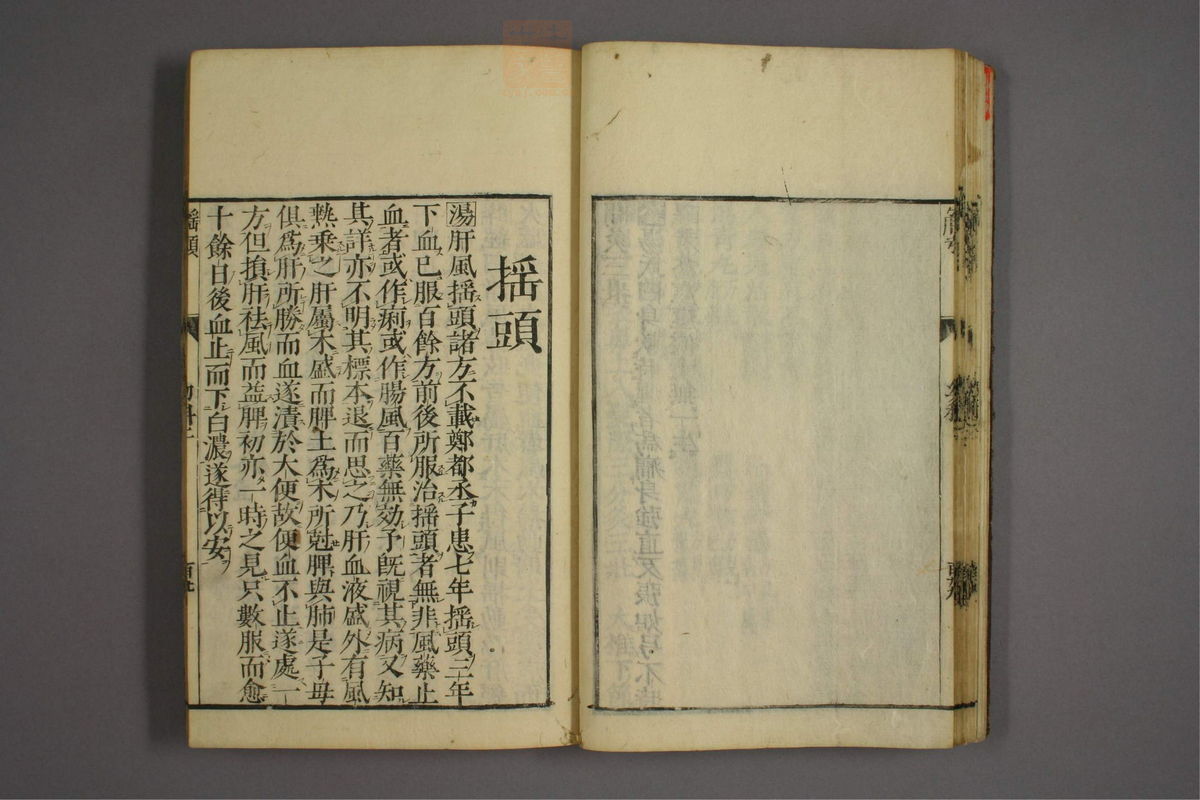 搖頭
湯肝風搖頭諸方不載鄭都丞子患七年搖頭三年
下血已服百餘方前後所服治搖頭者無非風藥止
血者或作痢或作腸風百藥無効予既視其病又知
其詳亦不明其標本退而思之乃肝血液盛外有風
熱乘之肝屬木盛而脾土爲木所尅脾與肺是子母
俱爲肝所勝而血遂漬於大便故便血不止遂處一
方但損肝祛風而益脾初亦一時之見只數服而愈
十餘日後血止而下白濃遂得以安
搖頭